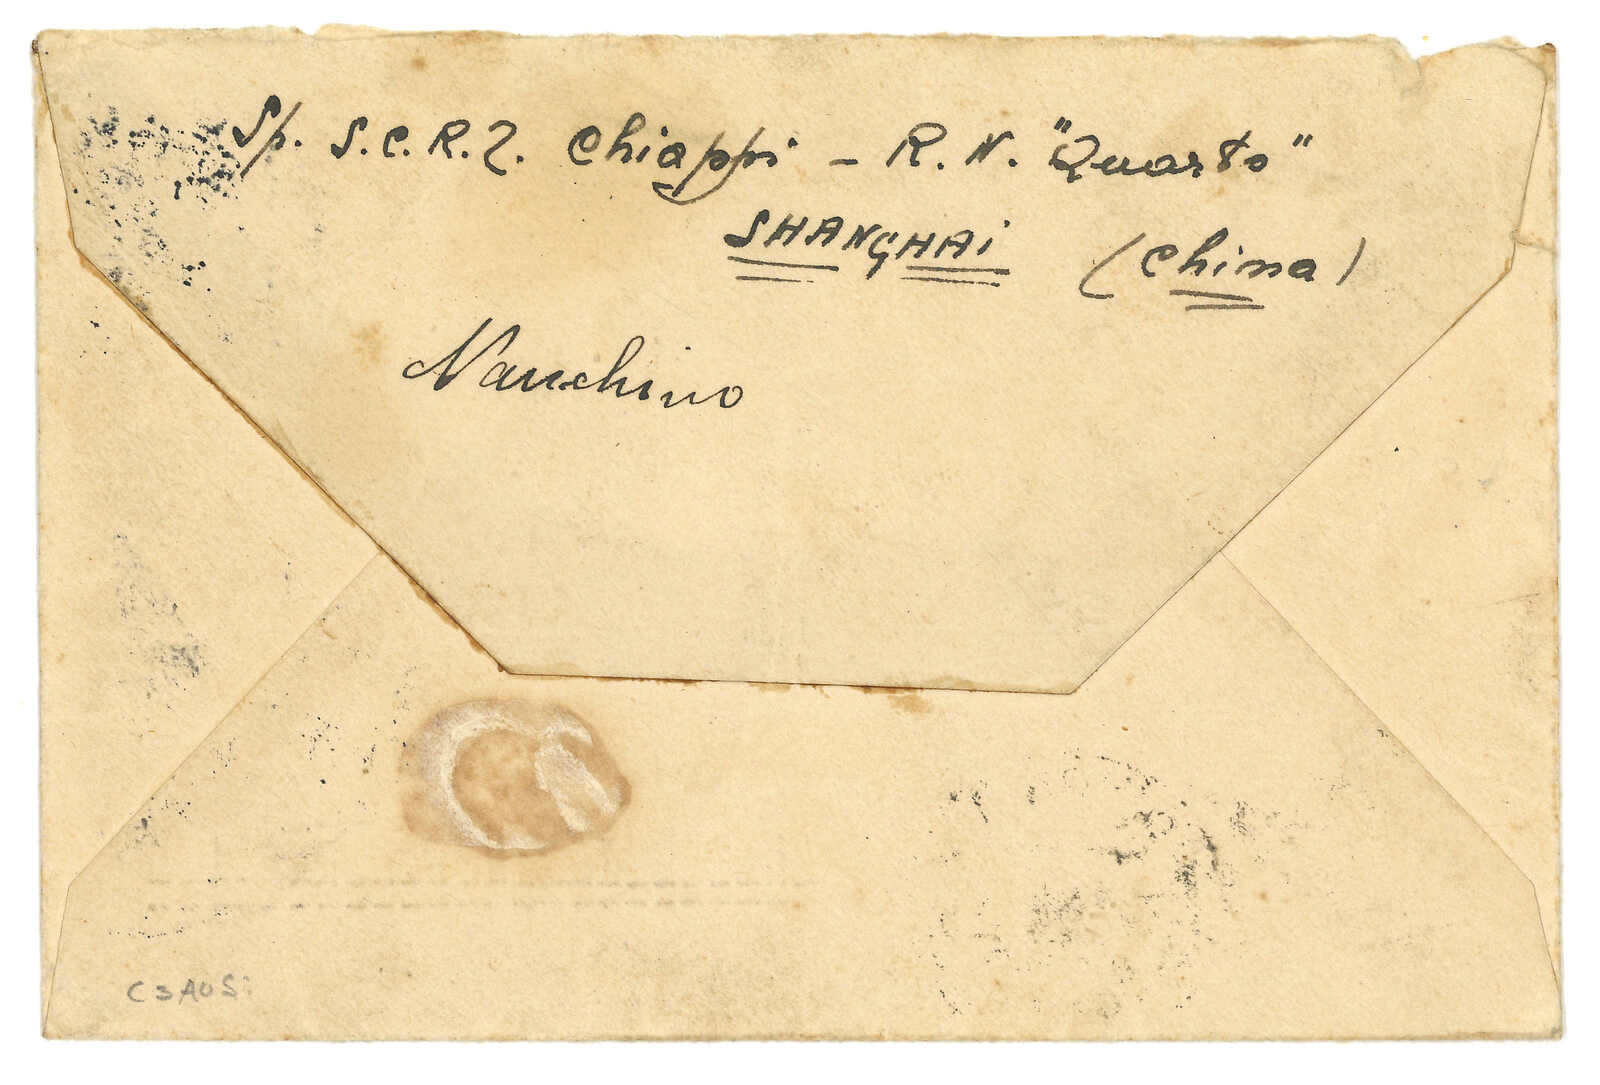 Sp. S.C.R.2. Chiappi - R.N. "Quarto"
SHANGHAI (China)
Nanchino
C3AOS: